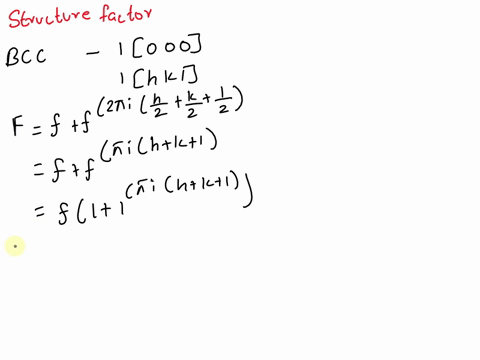 Structure factor
BCC - 1 [0 0 0]
1 [h k 1]
F = f + f^(2πi (h/2 + k/2 + 1/2)
= f + f^(πi (h+k+1)
= f (1 + 1^(πi (h+k+1))